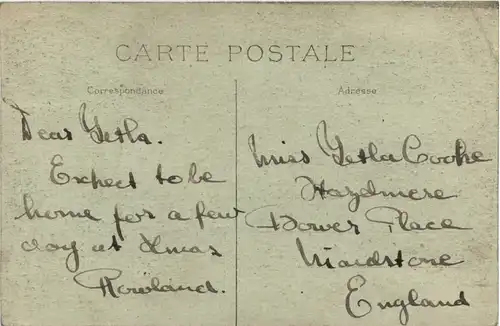 CARTE POSTALE
Correspondance
Adresse
Dear Yetla.
Expect to be
home for a few
day at Xmas
Rowland.
Miss Yetla Cooke
Hazelmere
Bower Place
Maidstone
England